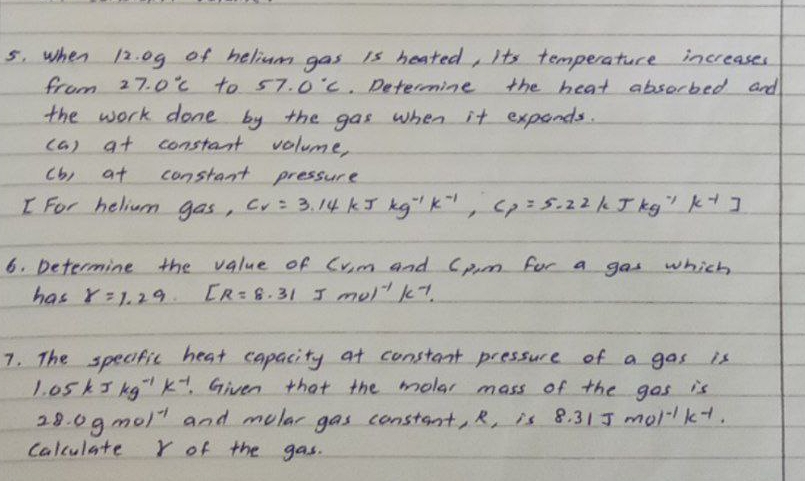 5. When 12.0g of helium gas is heated, its temperature increases
from 27.0°C to 57.0°C. Determine the heat absorbed and
the work done by the gas when it expands.
(a) at constant volume,
(b) at constant pressure
[ For helium gas, Cv = 3.14 kJ kg⁻¹ K⁻¹, Cp = 5.22 kJ kg⁻¹ K⁻¹ ]
6. Determine the value of Cv,m and Cp,m for a gas which
has γ = 1.29. [R = 8.31 J mol⁻¹ K⁻¹.
7. The specific heat capacity at constant pressure of a gas is
1.05 kJ kg⁻¹ K⁻¹. Given that the molar mass of the gas is
28.0g mol⁻¹ and molar gas constant, R, is 8.31 J mol⁻¹ K⁻¹.
Calculate γ of the gas.